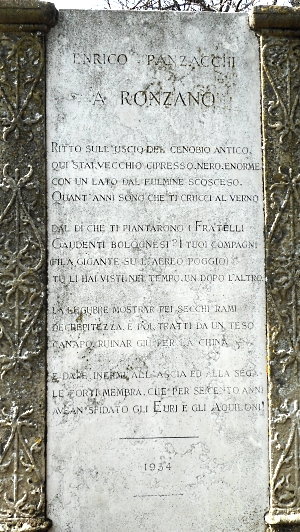 ENRICO PANZACCHI
A RONZANO
RITTO SULL'USCIO DEL CENOBIO ANTICO,
QUI STAI, VECCHIO CIPRESSO, NERO, ENORME,
CON UN LATO DAL FULMINE SCOSCESO.
QUANT'ANNI SONO CHE TI CRUCCI AL VERNO
DAL DI CHE TI PIANTARONO I FRATELLI
GAUDENTI BOLOGNESI? I TUOI COMPAGNI
(FILA GIGANTE SU L'AEREO POGGIO)
TU LI HAI VISTI NEL TEMPO, UN DOPO L'ALTRO,
LA LUGUBRE MOSTRAR PEI SECCHI RAMI
DECREPITEZZA, E POI, TRATTI DA UN TESO
CANAPO, RUINAR GIÙ PER LA CHINA,
E DARE INERMI ALL'ASCIA ED ALLA SEGA
LE FORTI MEMBRA, CHE PER SEICENTO ANNI
AVEAN SFIDATO GLI EURI E GLI AQUILONI.
1934